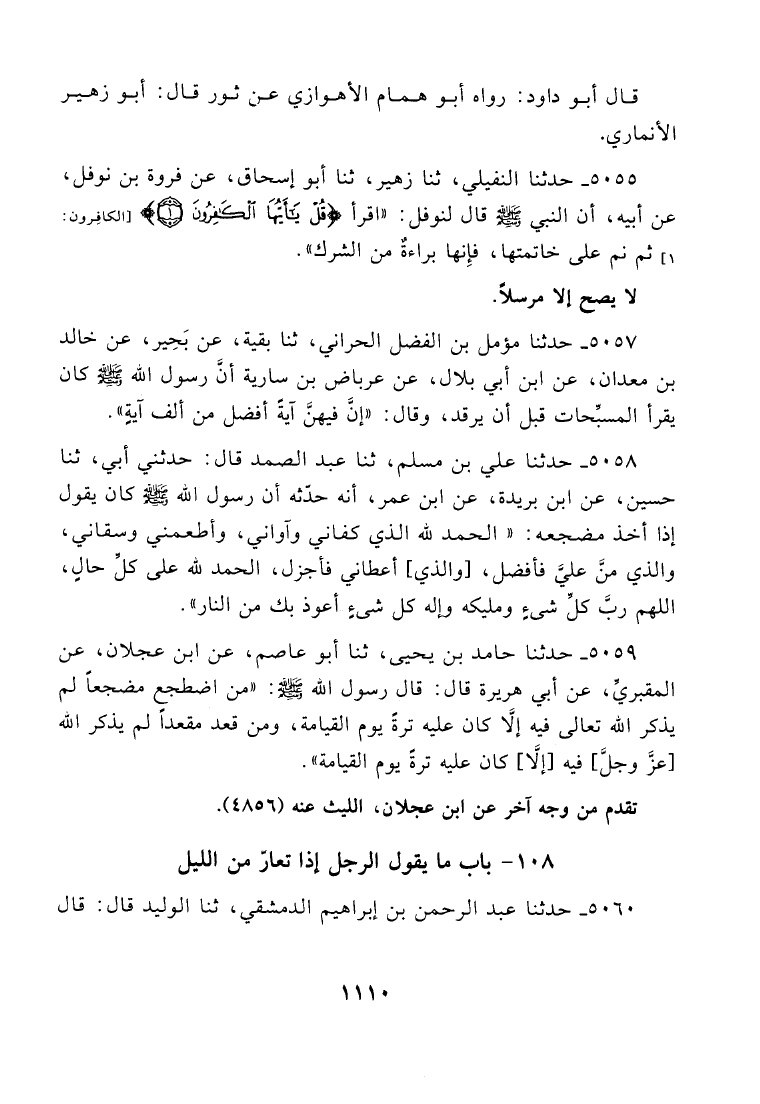 قال أبو داود: رواه أبو همام الأهوازي عن ثور قال: أبو زهير
الأنماري.
٥٠٥٥ـ حدثنا النفيلي، ثنا زهير، ثنا أبو إسحاق، عن فروة بن نوفل،
عن أبيه، أن النبي ﷺ قال لنوفل: «اقرأ ﴿قُلْ يَٰٓأَيُّهَا ٱلْكَٰفِرُونَ ۝١﴾ [الكافرون:
١] ثم نم على خاتمتها، فإنها براءةٌ من الشرك».
لا يصح إلا مرسلاً.
٥٠٥٧ـ حدثنا مؤمل بن الفضل الحراني، ثنا بقية، عن بَحِير، عن خالد
بن معدان، عن ابن أبي بلال، عن عرباض بن سارية أنَّ رسول الله ﷺ كان
يقرأ المسبِّحات قبل أن يرقد، وقال: «إنَّ فيهنَّ آيةً أفضل من ألف آيةٍ».
٥٠٥٨ـ حدثنا علي بن مسلم، ثنا عبد الصمد قال: حدثني أبي، ثنا
حسين، عن ابن بريدة، عن ابن عمر، أنه حدّثه أن رسول الله ﷺ كان يقول
إذا أخذ مضجعه: « الحمد لله الذي كفاني وآواني، وأطعمني وسقاني،
والذي منَّ عليَّ فأفضل، [والذي] أعطاني فأجزل، الحمد لله على كلِّ حالٍ،
اللهم ربَّ كلِّ شىءٍ ومليكه وإله كل شىءٍ أعوذ بك من النار».
٥٠٥٩ـ حدثنا حامد بن يحيى، ثنا أبو عاصم، عن ابن عجلان، عن
المقبريِّ، عن أبي هريرة قال: قال رسول الله ﷺ: «من اضطجع مضجعاً لم
يذكر الله تعالى فيه إلَّا كان عليه ترةً يوم القيامة، ومن قعد مقعداً لم يذكر الله
[عزَّ وجلَّ] فيه [إلَّا] كان عليه ترةً يوم القيامة».
تقدم من وجه آخر عن ابن عجلان، الليث عنه (٤٨٥٦).
١٠٨- باب ما يقول الرجل إذا تعارّ من الليل
٥٠٦٠ـ حدثنا عبد الرحمن بن إبراهيم الدمشقي، ثنا الوليد قال: قال
١١١٠